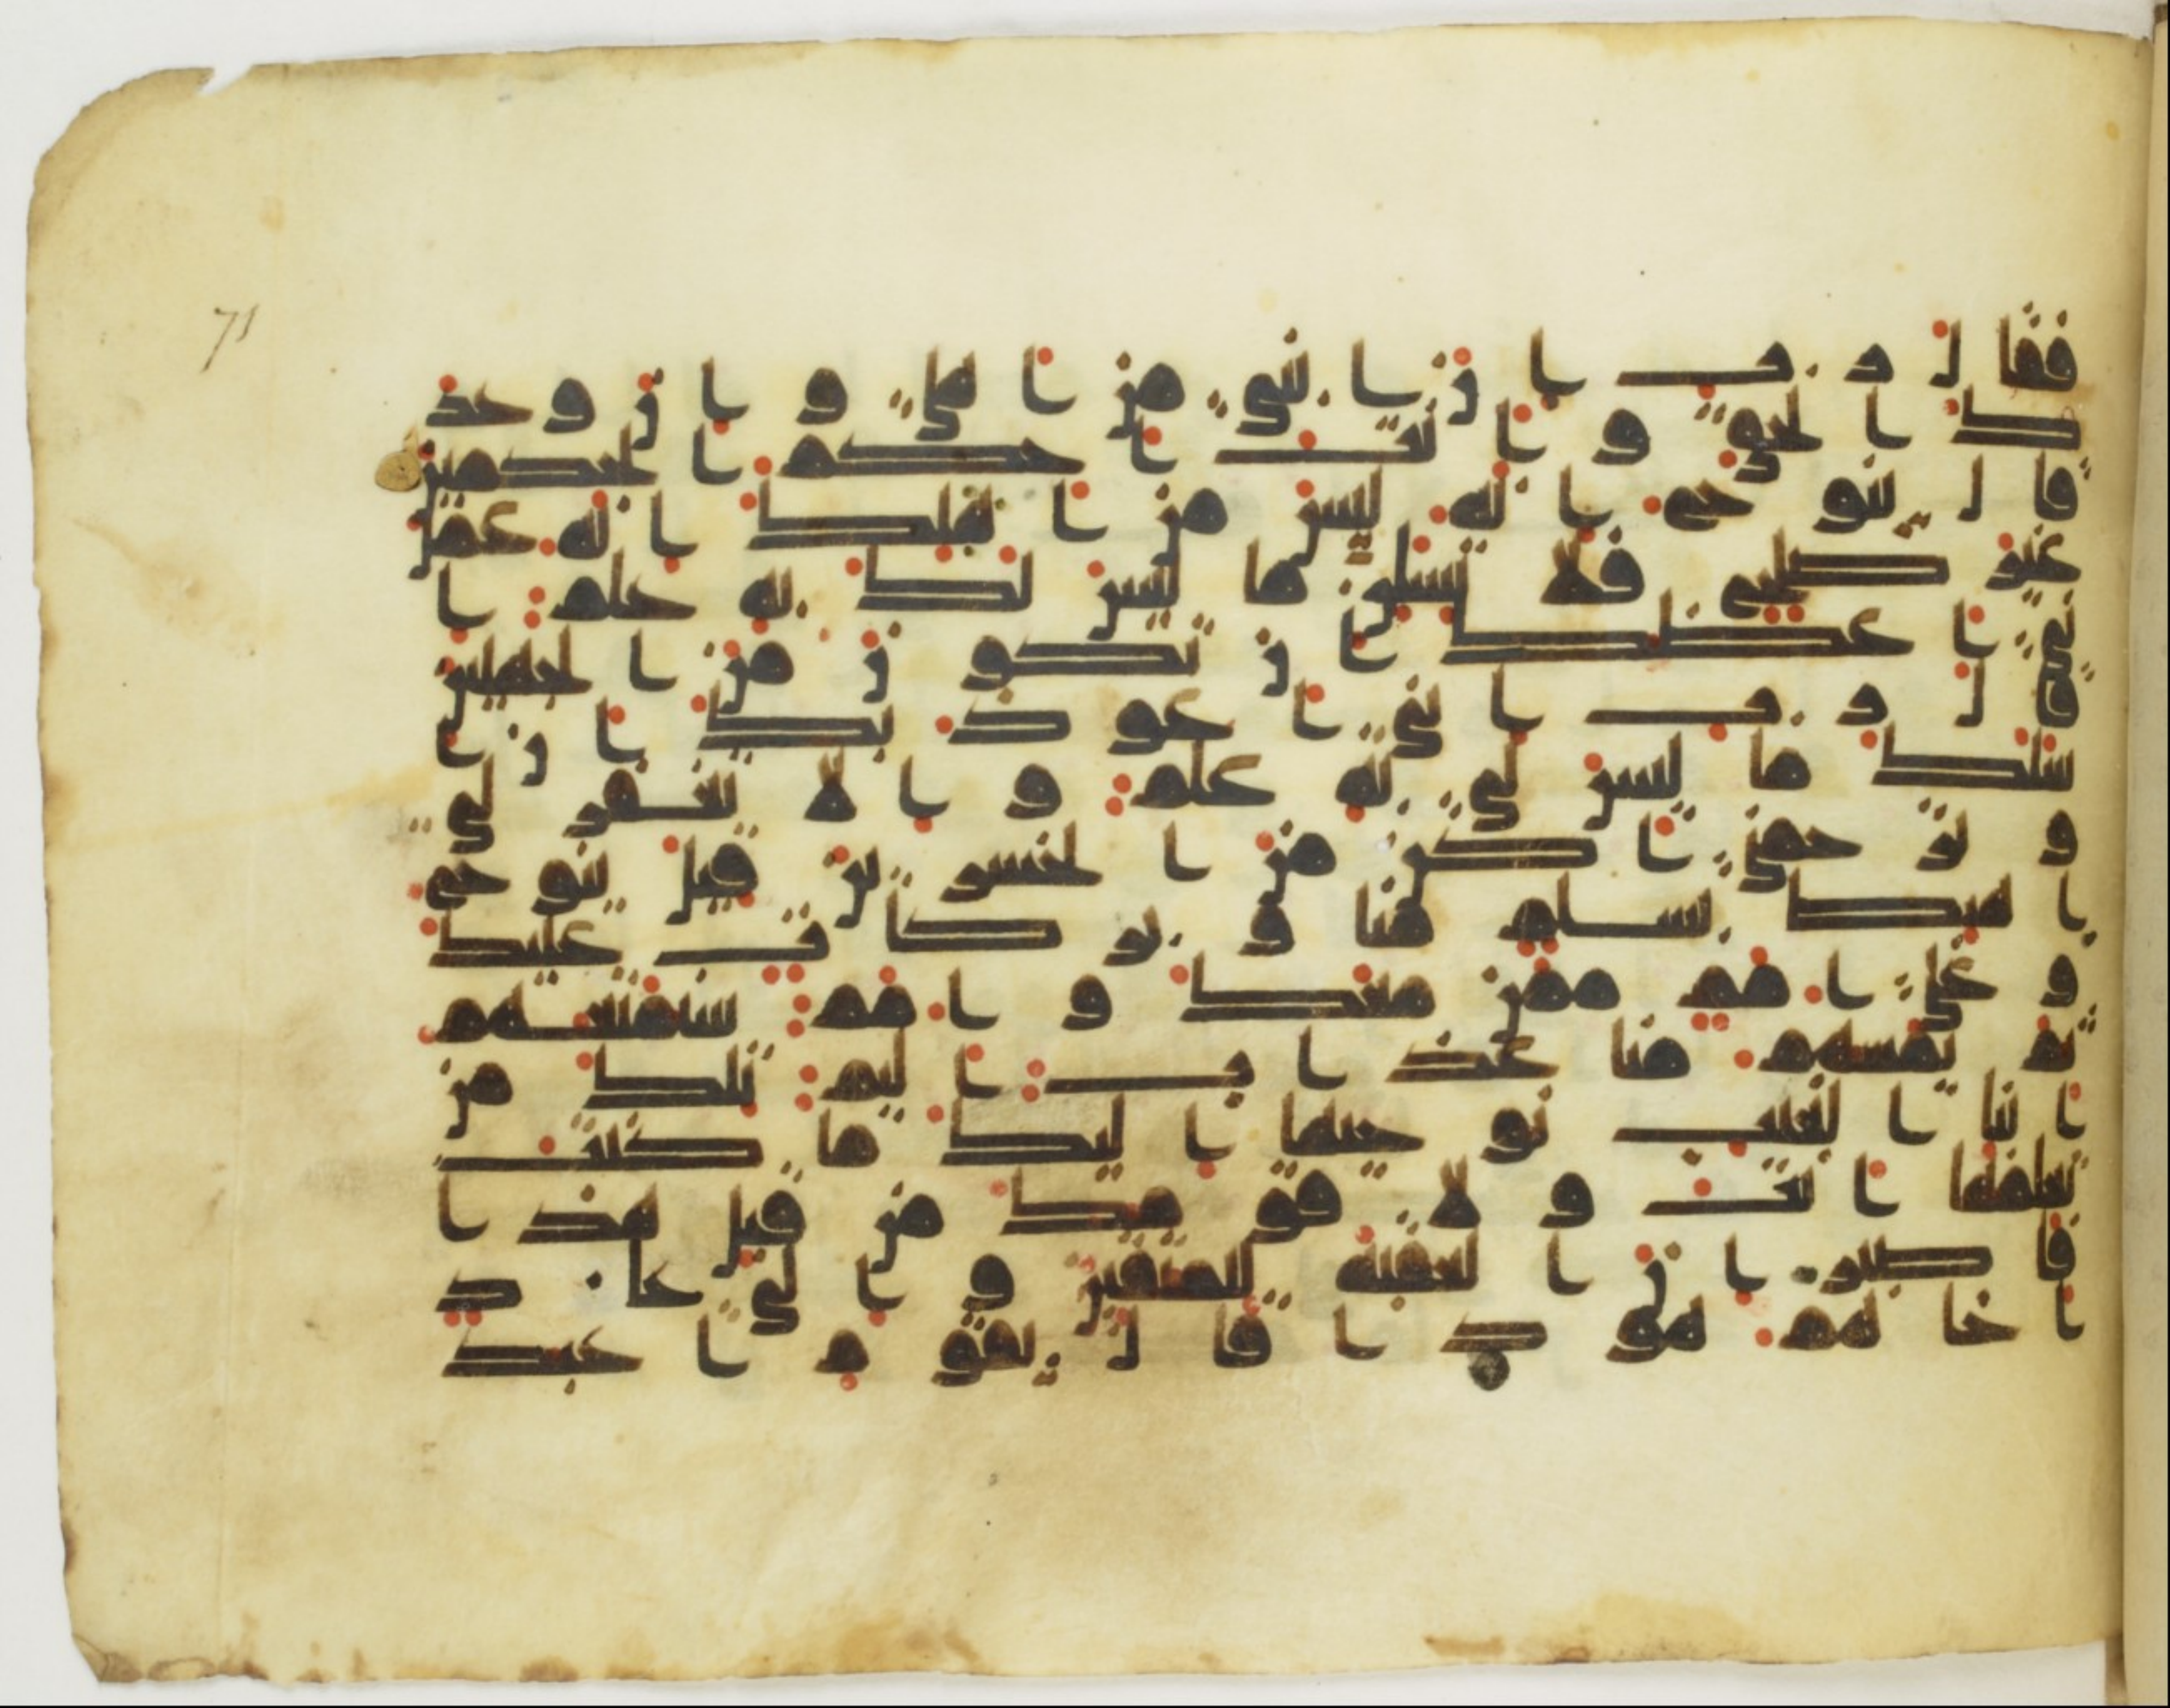 71
فقال رب ان ابني من اهلي وان وعد
ك الحق وانت احكم الحكمين
قال ينوح انه ليس من اهلك انه عمل
غير صلح فلا تسلن ما ليس لك به علم ا
ني اعظك ان تكون من الجهلين
قال رب اني اعوذ بك ان ا
سلك ما ليس لي به علم والا تغفر لي
وترحمني اكن من الخسرين قيل ينوح
اهبط بسلم منا وبركات عليك
وعلى امم ممن معك وامم سنمتعهم
ثم يمسهم منا عذاب اليم تلك من
انبا الغيب نوحيها اليك ما كنت
تعلمها انت ولا قومك من قبل هذا
فاصبر ان العقبة للمتقين والى عاد
اخاهم هودا قال يقوم اعبد